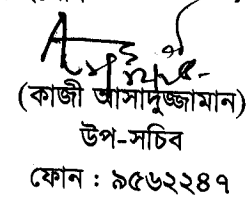 (কাজী আসাদুজ্জামান)
উপ-সচিব
ফোন : ৯৫৬২২৪৭